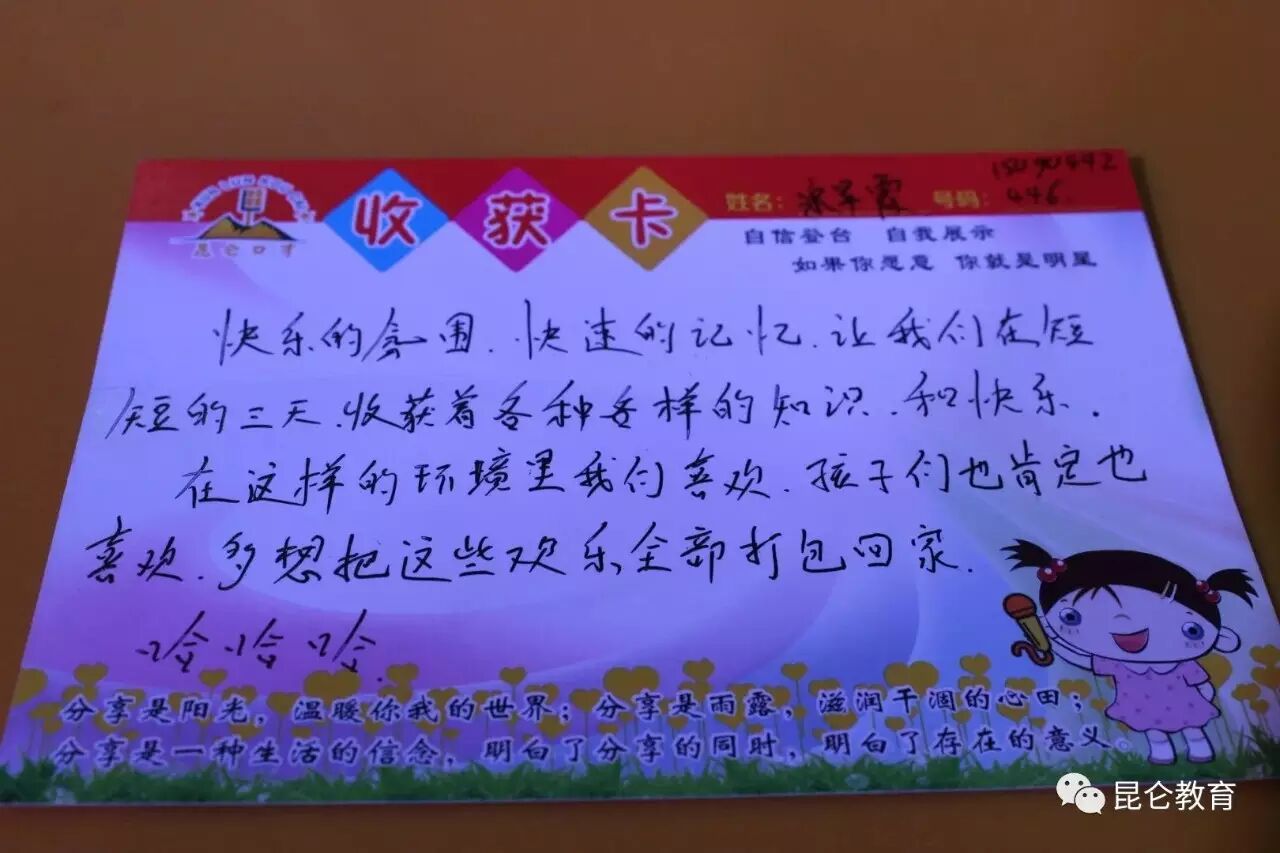 收获卡
昆仑口才
姓名: 号码: 446
自信登台 自我展示
如果你愿意 你就是明星
快乐的氛围、快速的记忆、让我们在短
短的三天、收获着各种各样的知识、和快乐.
在这样的环境里我们喜欢、孩子们也肯定也
喜欢、多想把这些欢乐全部打包回家.
哈哈哈.
分享是阳光，温暖你我的世界；分享是雨露，滋润干涸的心田；
分享是一种生活的信念，明白了分享的同时，明白了存在的意义。
昆仑教育